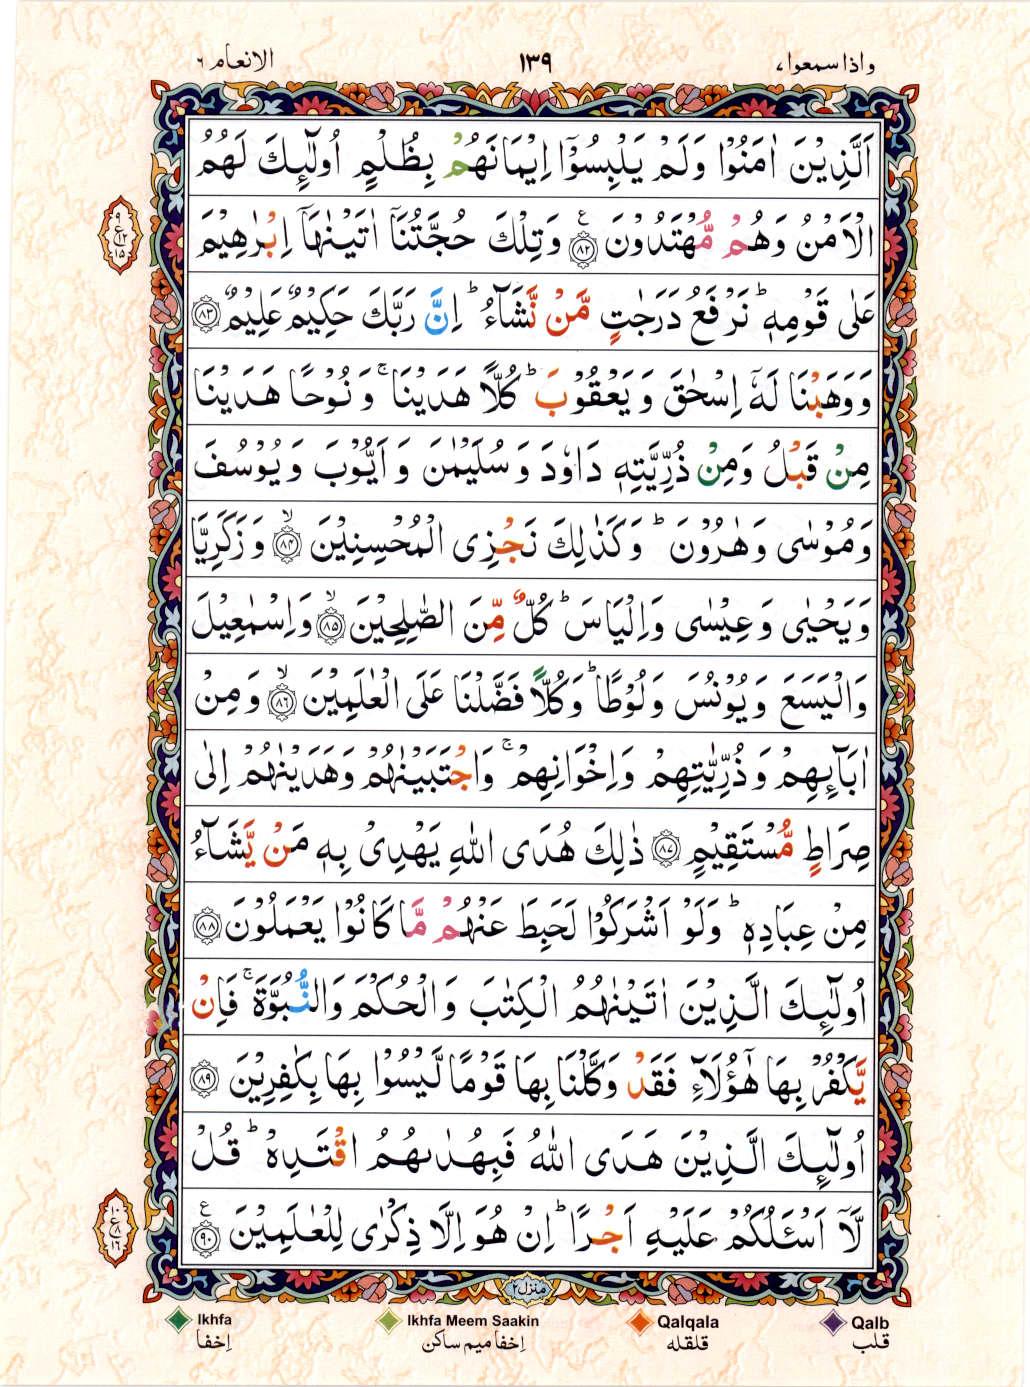 الانعام ٦
١٣٩
واذا سمعوا ٧
اَلَّذِيْنَ اٰمَنُوْا وَلَمْ يَلْبِسُوْٓا اِيْمَانَهُمْ بِظُلْمٍ اُولٰٓئِكَ لَهُمُ
الْاَمْنُ وَهُمْ مُّهْتَدُوْنَ ﴿٨٢﴾ ع وَتِلْكَ حُجَّتُنَاۤ اٰتَيْنٰهَاۤ اِبْرٰهِيْمَ
عَلٰى قَوْمِهٖ ؕ نَرْفَعُ دَرَجٰتٍ مَّنْ نَّشَآءُ ؕ اِنَّ رَبَّكَ حَكِيْمٌ عَلِيْمٌ ﴿٨٣﴾
وَوَهَبْنَا لَهٗۤ اِسْحٰقَ وَيَعْقُوْبَ ؕ كُلًّا هَدَيْنَا ۚ وَنُوْحًا هَدَيْنَا
مِنْ قَبْلُ وَمِنْ ذُرِّيَّتِهٖ دَاوٗدَ وَسُلَيْمٰنَ وَاَيُّوْبَ وَيُوْسُفَ
وَمُوْسٰى وَهٰرُوْنَ ؕ وَكَذٰلِكَ نَجْزِى الْمُحْسِنِيْنَ ۙ﴿٨٤﴾ وَزَكَرِيَّا
وَيَحْيٰى وَعِيْسٰى وَاِلْيَاسَ ؕ كُلٌّ مِّنَ الصّٰلِحِيْنَ ۙ﴿٨٥﴾ وَاِسْمٰعِيْلَ
وَالْيَسَعَ وَيُوْنُسَ وَلُوْطًا ؕ وَكُلًّا فَضَّلْنَا عَلَى الْعٰلَمِيْنَ ۙ﴿٨٦﴾ وَمِنْ
اٰبَآئِهِمْ وَذُرِّيّٰتِهِمْ وَاِخْوَانِهِمْ ۚ وَاجْتَبَيْنٰهُمْ وَهَدَيْنٰهُمْ اِلٰى
صِرَاطٍ مُّسْتَقِيْمٍ ﴿٨٧﴾ ذٰلِكَ هُدَى اللّٰهِ يَهْدِىْ بِهٖ مَنْ يَّشَآءُ
مِنْ عِبَادِهٖ ؕ وَلَوْ اَشْرَكُوْا لَحَبِطَ عَنْهُمْ مَّا كَانُوْا يَعْمَلُوْنَ ﴿٨٨﴾
اُولٰٓئِكَ الَّذِيْنَ اٰتَيْنٰهُمُ الْكِتٰبَ وَالْحُكْمَ وَالنُّبُوَّةَ ۚ فَاِنْ
يَّكْفُرْ بِهَا هٰٓؤُلَآءِ فَقَدْ وَكَّلْنَا بِهَا قَوْمًا لَّيْسُوْا بِهَا بِكٰفِرِيْنَ ﴿٨٩﴾
اُولٰٓئِكَ الَّذِيْنَ هَدَى اللّٰهُ فَبِهُدٰىهُمُ اقْتَدِهْ ؕ قُلْ
لَّاۤ اَسْئَلُكُمْ عَلَيْهِ اَجْرًا ؕ اِنْ هُوَ اِلَّا ذِكْرٰى لِلْعٰلَمِيْنَ ﴿٩٠﴾ ع
٩
ع ١٢
١٥
١٠
ع ٨
١٦
منزل ٢
Ikhfa
Ikhfa Meem Saakin
Qalqala
Qalb
اِخفا
اِخفا میم ساکن
قلقله
قلب